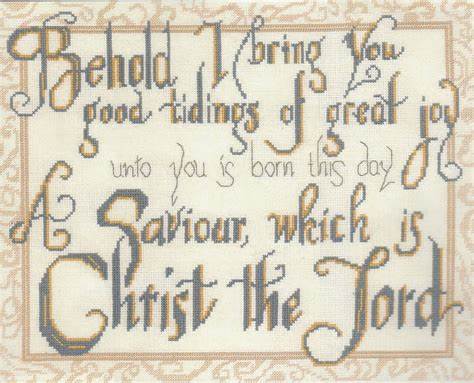 Behold I bring You
good tidings of great joy
unto you is born this day
A Saviour, which is
Christ the Lord